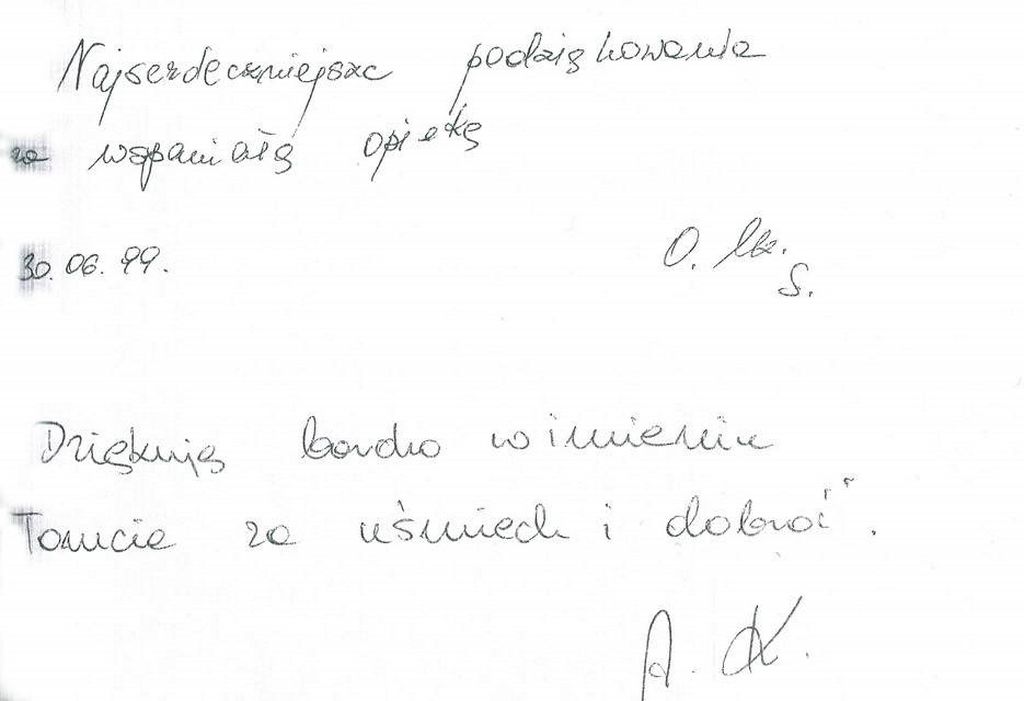 Najserdeczniejsze podziękowania
za wspaniałą opiekę
30.06.99.
O.
S.
Dziękuję bardzo w imieniu
za uśmiech i dobroć".
A. K.